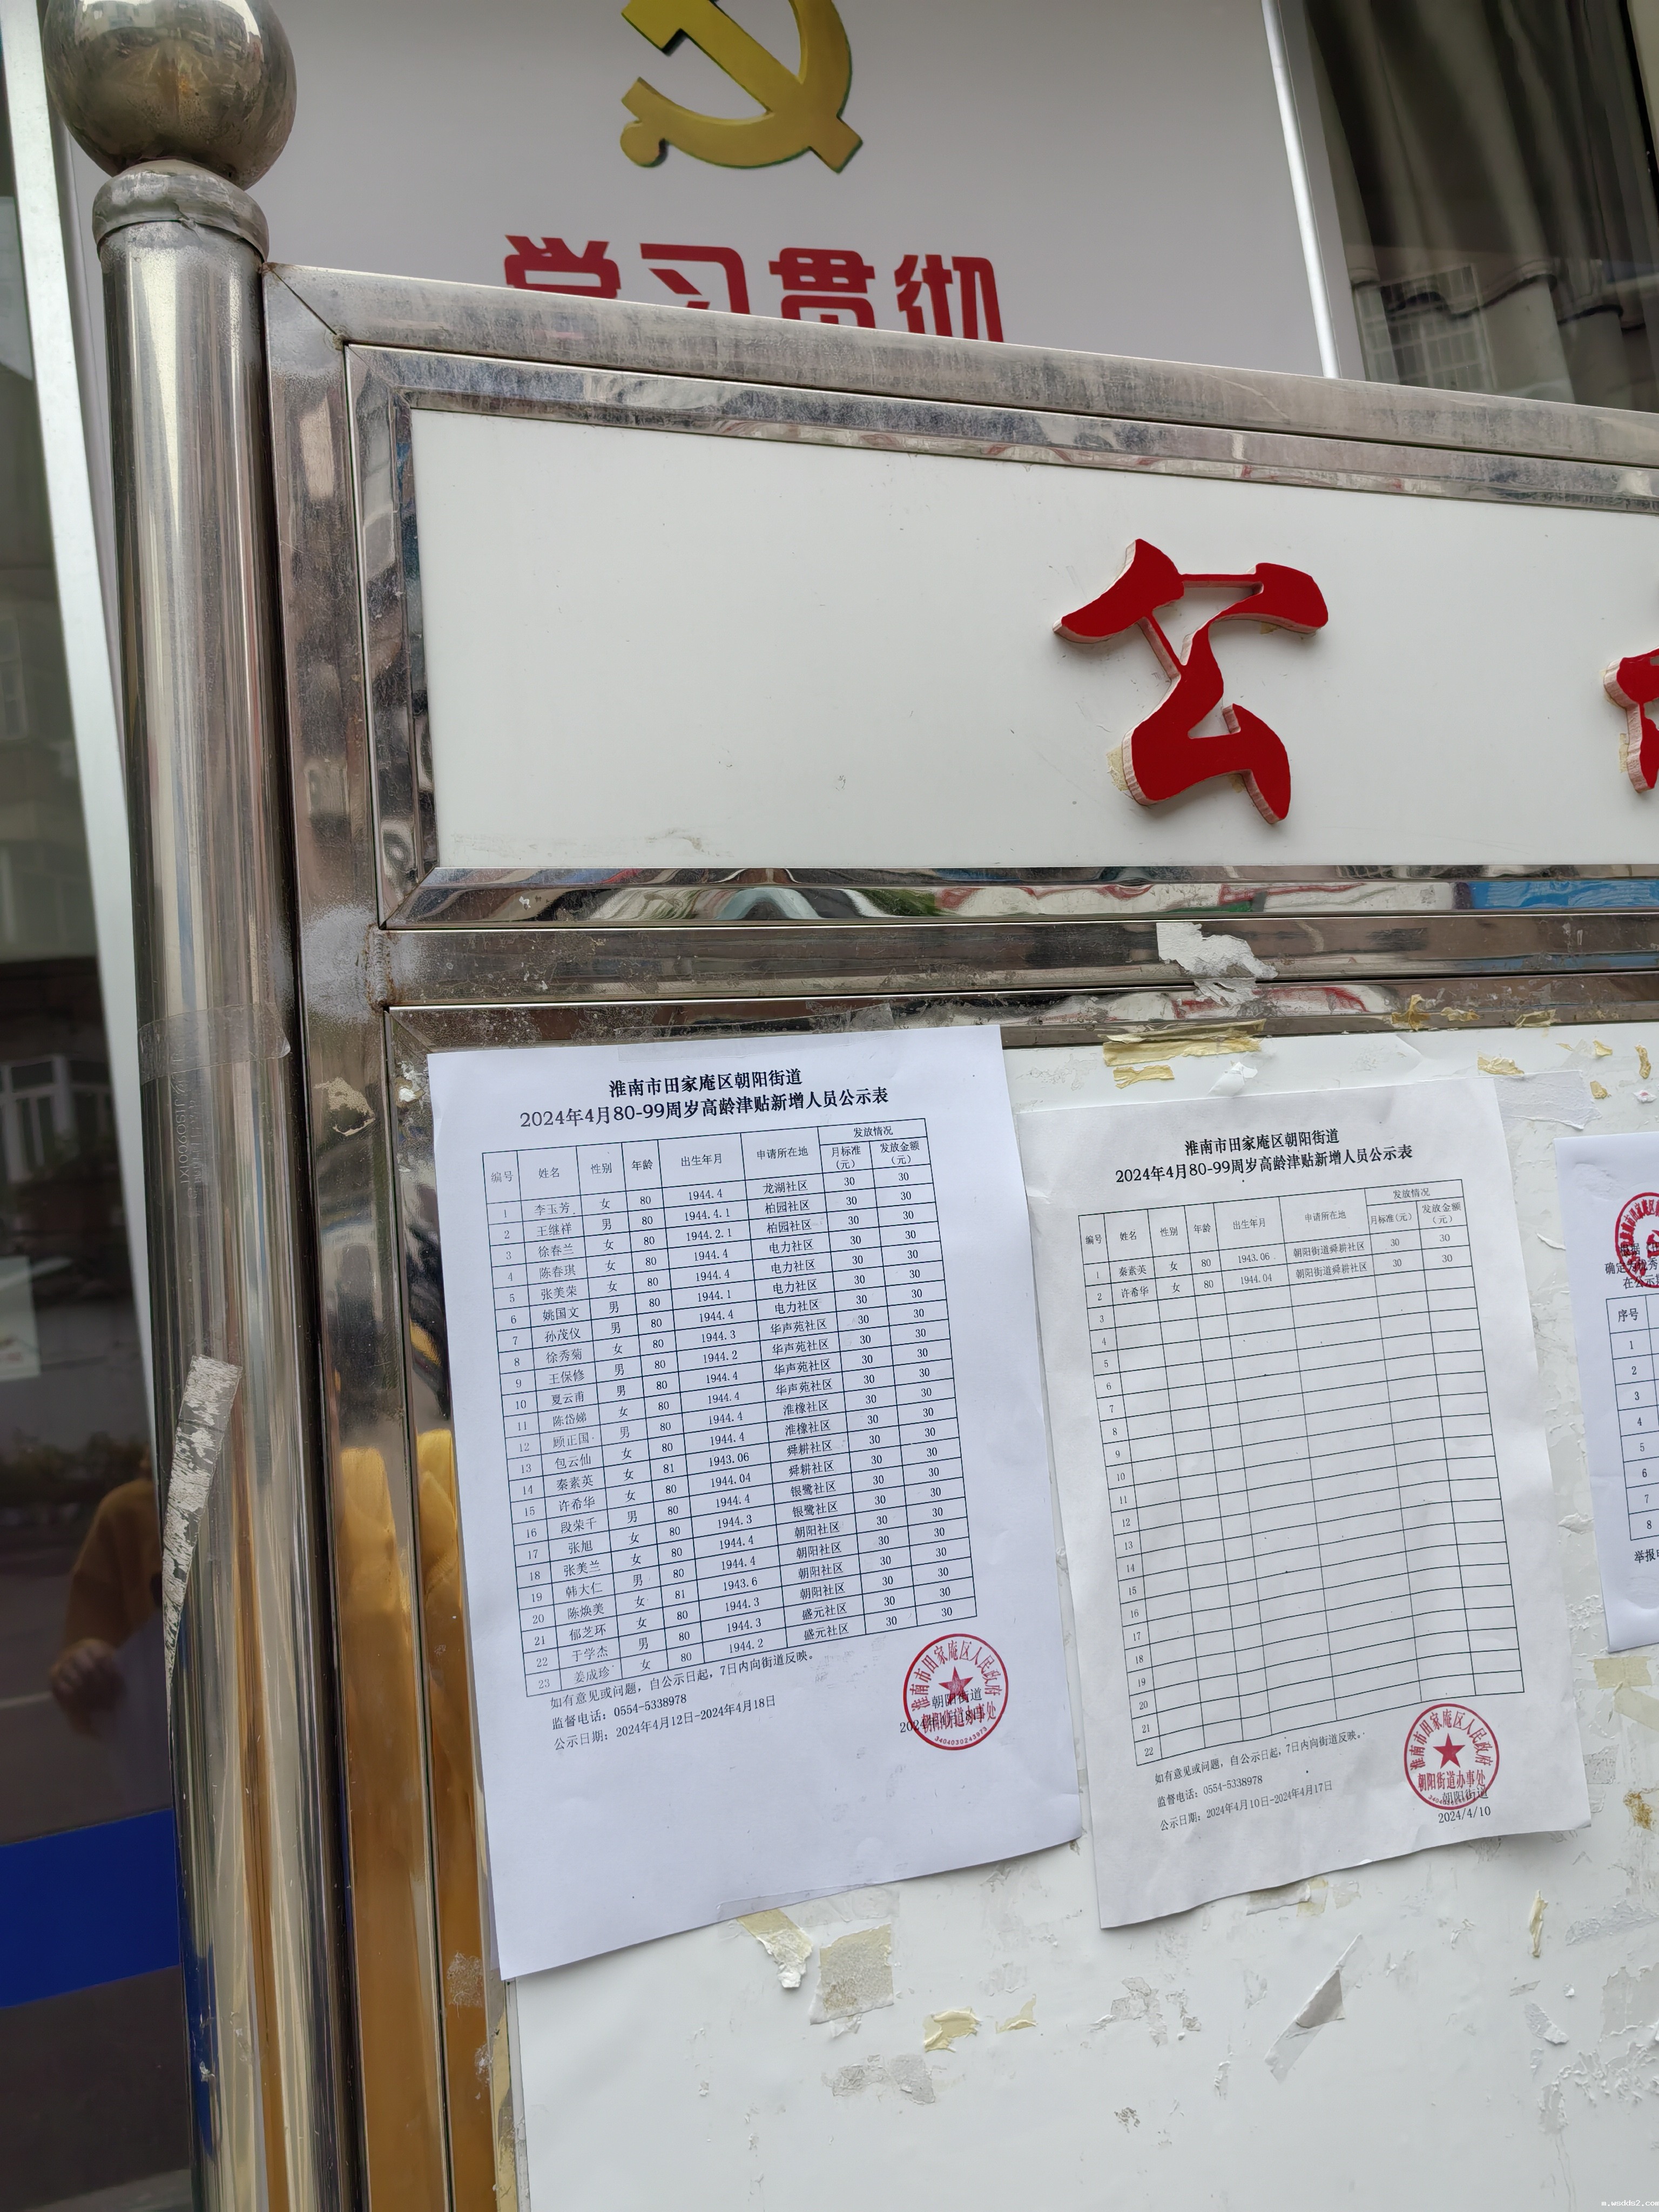 学习贯彻
公
淮南市田家庵区朝阳街道
2024年4月80-99周岁高龄津贴新增人员公示表
编号 姓名 性别 年龄 出生年月 申请所在地 发放情况
月标准(元) 发放金额(元)
1 李玉芳 女 80 1944.4 龙湖社区 30 30
2 王继祥 男 80 1944.4.1 柏园社区 30 30
3 徐春兰 女 80 1944.2.1 柏园社区 30 30
4 陈春琪 女 80 1944.4 电力社区 30 30
5 张美荣 女 80 1944.4 电力社区 30 30
6 姚国文 男 80 1944.1 电力社区 30 30
7 孙茂仪 男 80 1944.4 电力社区 30 30
8 徐秀菊 女 80 1944.3 华声苑社区 30 30
9 王保修 男 80 1944.2 华声苑社区 30 30
10 夏云甫 男 80 1944.4 华声苑社区 30 30
11 陈岱娣 女 80 1944.4 华声苑社区 30 30
12 顾正国 男 80 1944.4 淮橡社区 30 30
13 包云仙 女 80 1944.4 淮橡社区 30 30
14 秦素英 女 81 1943.06 舜耕社区 30 30
15 许希华 女 80 1944.04 舜耕社区 30 30
16 段荣千 男 80 1944.4 银鹭社区 30 30
17 张旭 女 80 1944.3 银鹭社区 30 30
18 张美兰 女 80 1944.4 朝阳社区 30 30
19 韩大仁 男 80 1944.4 朝阳社区 30 30
20 陈焕美 女 81 1943.6 朝阳社区 30 30
21 郁芝环 女 80 1944.3 朝阳社区 30 30
22 于学杰 男 80 1944.3 盛元社区 30 30
23 姜成珍 女 80 1944.2 盛元社区 30 30
如有意见或问题，自公示日起，7日内向街道反映。
监督电话：0554-5338978
公示日期：2024年4月12日-2024年4月18日
朝阳街道
淮南市田家庵区人民政府
朝阳街道办事处
3404030243973
淮南市田家庵区朝阳街道
2024年4月80-99周岁高龄津贴新增人员公示表
编号 姓名 性别 年龄 出生年月 申请所在地 发放情况
月标准(元) 发放金额(元)
1 秦素英 女 80 1943.06 朝阳街道舜耕社区 30 30
2 许希华 女 80 1944.04 朝阳街道舜耕社区 30 30
3
4
5
6
7
8
9
10
11
12
13
14
15
16
17
18
19
20
21
22
如有意见或问题，自公示日起，7日内向街道反映。
监督电话：0554-5338978
公示日期：2024年4月10日-2024年4月17日
淮南市田家庵区人民政府
朝阳街道办事处
朝阳街道
2024/4/10
在公示
序号
1
2
3
4
5
6
7
8
举报
m.wsddu2.com